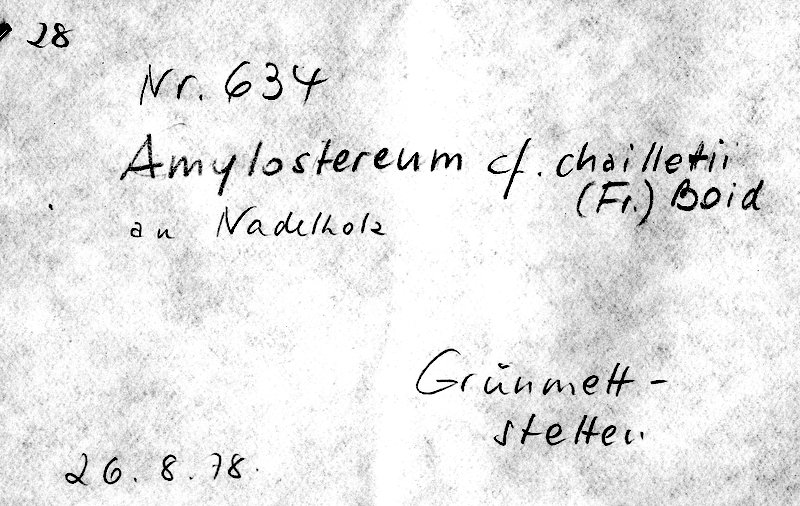 28
Nr. 634
Amylostereum cf. chailletii
(Fr.) Boid
an Nadelholz
Grünmett-
stetten
26.8.78.